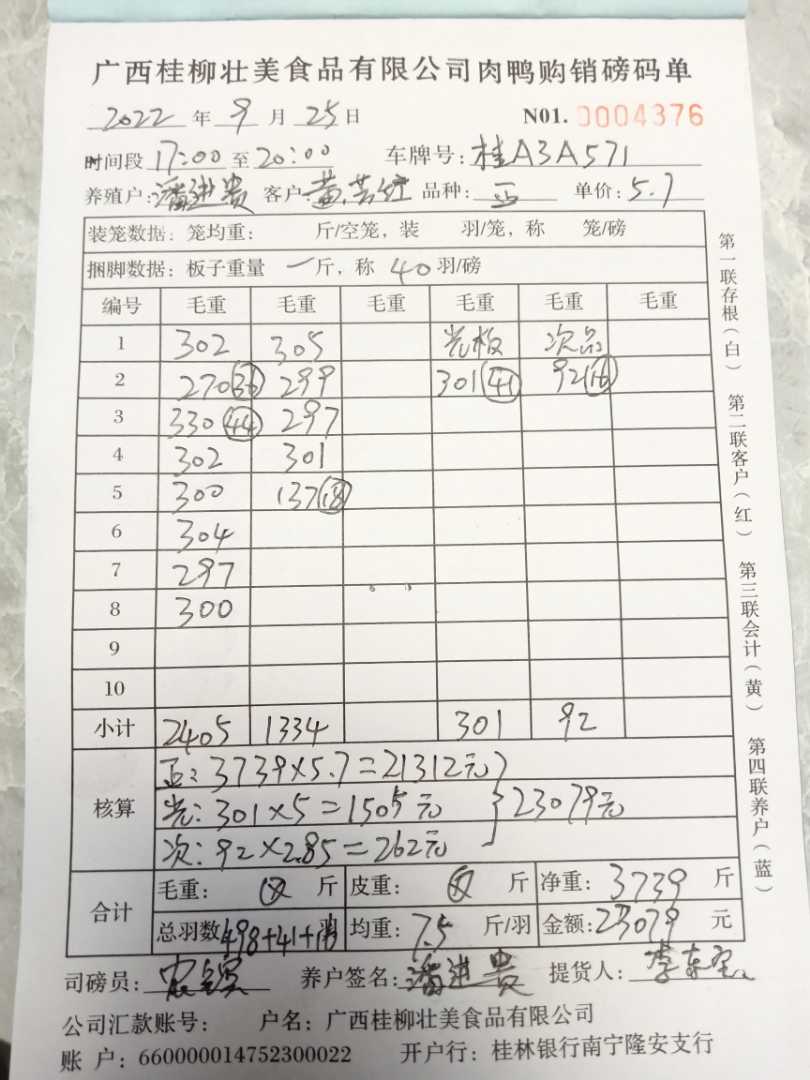 广西桂柳壮美食品有限公司肉鸭购销磅码单
2022 年 9 月 25 日 N01. 0004376
时间段 17:00 至 20:00 车牌号: 桂A3A571
养殖户: 潘进贵 客户: 黄 品种: 正 单价: 5.7
装笼数据: 笼均重: 斤/空笼, 装 羽/笼, 称 笼/磅
捆脚数据: 板子重量 一 斤, 称 40 羽/磅
编号 毛重 毛重 毛重 毛重 毛重 毛重
1 302 305 光板 次品
2 270(36) 299 301(41) 92(16)
3 330(44) 297
4 302 301
5 300 137(18)
6 304
7 297
8 300
9
10
小计 2405 1334 301 92
核算
正: 3739×5.7=21312元
光: 301×5=1505元 }23079元
次: 92×2.85=262元
合计
毛重: 斤 皮重: 斤 净重: 3739 斤
总羽数 498+41+16 羽 均重: 7.5 斤/羽 金额: 23079 元
司磅员: 养户签名: 潘进贵 提货人: 李
公司汇款账号: 户名: 广西桂柳壮美食品有限公司
账 户: 660000014752300022 开户行: 桂林银行南宁隆安支行
第一联存根(白) 第二联客户(红) 第三联会计(黄) 第四联养户(蓝)